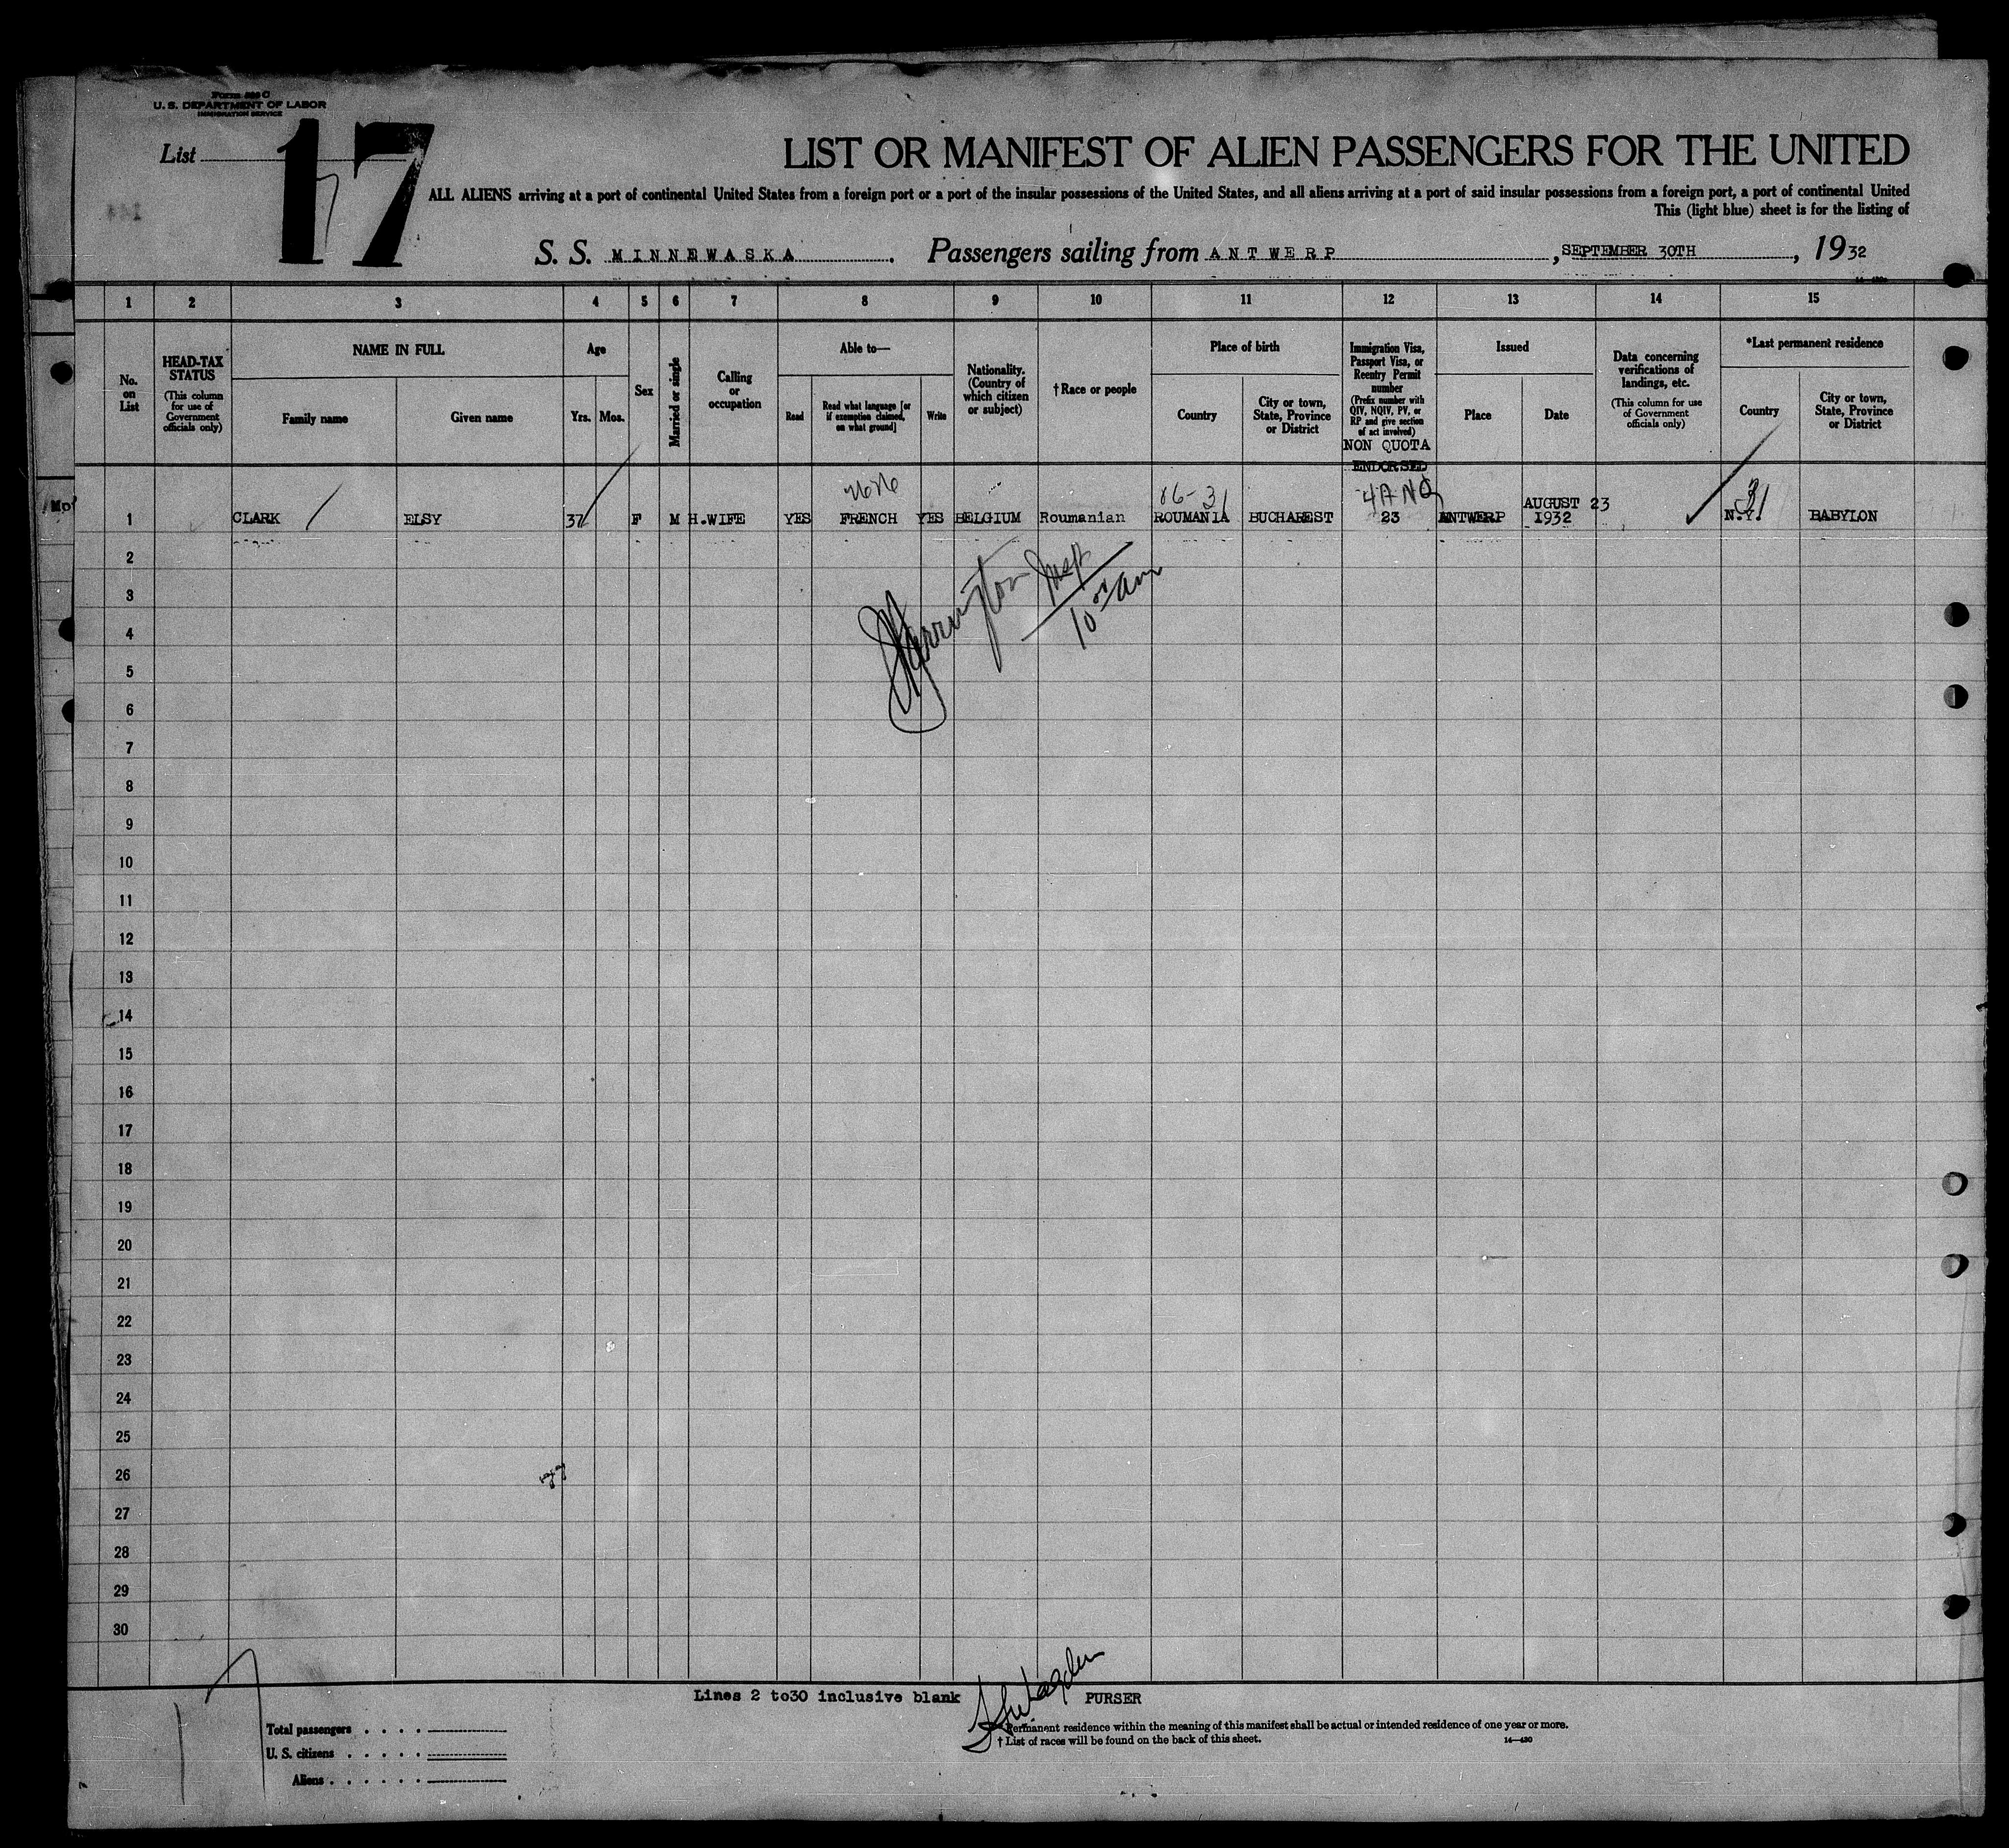 Form 500 C
U. S. DEPARTMENT OF LABOR
IMMIGRATION SERVICE
List 17
LIST OR MANIFEST OF ALIEN PASSENGERS FOR THE UNITED
ALL ALIENS arriving at a port of continental United States from a foreign port or a port of the insular possessions of the United States, and all aliens arriving at a port of said insular possessions from a foreign port, a port of continental United
This (light blue) sheet is for the listing of
S. S. MINNEWASKA Passengers sailing from ANTWERP, SEPTEMBER 30TH, 1932
1 2 3 4 5 6 7 8 9 10 11 12 13 14 15
No. on List
HEAD-TAX STATUS
(This column for use of Government officials only)
NAME IN FULL
Family name
Given name
Age
Yrs. Mos.
Sex
Married or single
Calling or occupation
Able to—
Read
Read what language [or if exemption claimed, on what ground]
Write
Nationality. (Country of which citizen or subject)
† Race or people
Place of birth
Country
City or town, State, Province or District
Immigration Visa, Passport Visa, or Reentry Permit number
(Prefix number with QIV, NQIV, PV, or RP and give section of act involved)
NON QUOTA
ENDORSED
Issued
Place
Date
Data concerning verifications of landings, etc.
(This column for use of Government officials only)
*Last permanent residence
Country
City or town, State, Province or District
06-31 4A NQ 31
1 CLARK ELSY 37 F M H.WIFE YES FRENCH YES BELGIUM Roumanian ROUMANIA BUCHAREST 23 ANTWERP AUGUST 23 1932 N.Y. BABYLON
2
3
Harrington Insp
10 00 am
4
5
6
7
8
9
10
11
12
13
14
15
16
17
18
19
20
21
22
23
24
25
26
27
28
29
30
Lines 2 to30 inclusive blank PURSER
Total passengers
U. S. citizens
Aliens
Permanent residence within the meaning of this manifest shall be actual or intended residence of one year or more.
† List of races will be found on the back of this sheet.
14—430